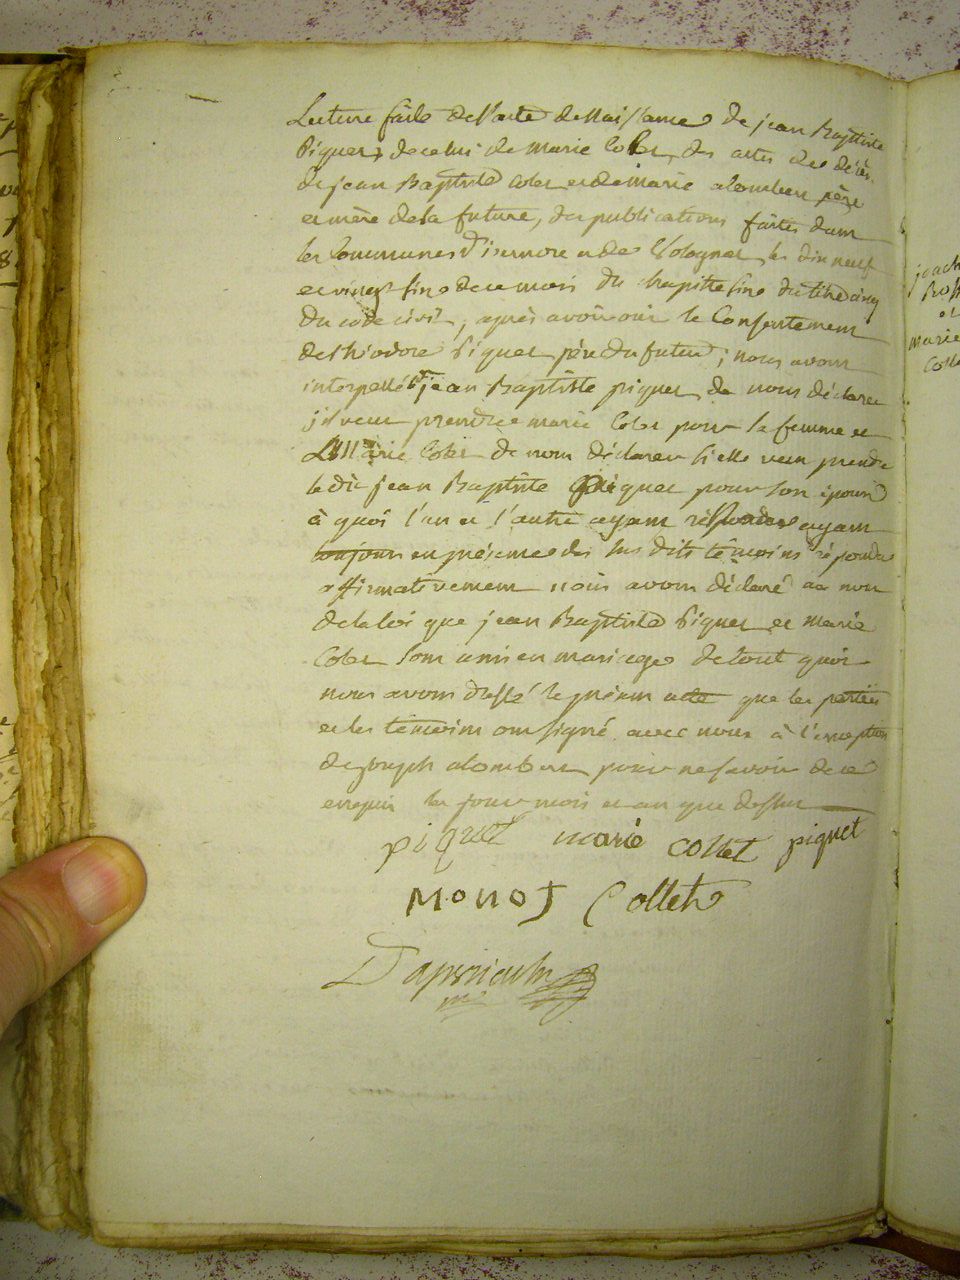 Lecture faite de l'acte de Naissance de jean Baptiste
Piquet, de celui de Marie Colet, des actes de décès
de jean Baptiste Colet et de marie alombert père
et mère de la future, des publications faites dans
les Communes d'isernore et de Volognat, les dix neuf
et vingt six de ce mois du chapitre six du titre cinq
du code civil, après avoir oui le Consentement
de thiodore Piquet père du futur; nous avons
interpellé jean Baptiste piquet de nous déclarer
s'il veut prendre marie Colet pour sa femme et
Marie Colet de nous déclarer si elle veut prendre
le dit jean Baptiste Piquet pour son époux
à quoi l'un et l'autre ayant répondu ayant
toujours en présence des sus dits témoins répondu
affirmativement nous avons déclaré au nom
de la loi que jean Baptiste Piquet et marie
Colet sont unis en mariage de tout quoi
nous avons dressé le présent acte que les parties
et les témoins ont signé avec nous à l'exception
de joseph alombert pour ne savoir de ce
enquis les jour mois et an que dessus
piquet marie collet piquet
MONOT Collet
joach
Ross
et
marie
Coll